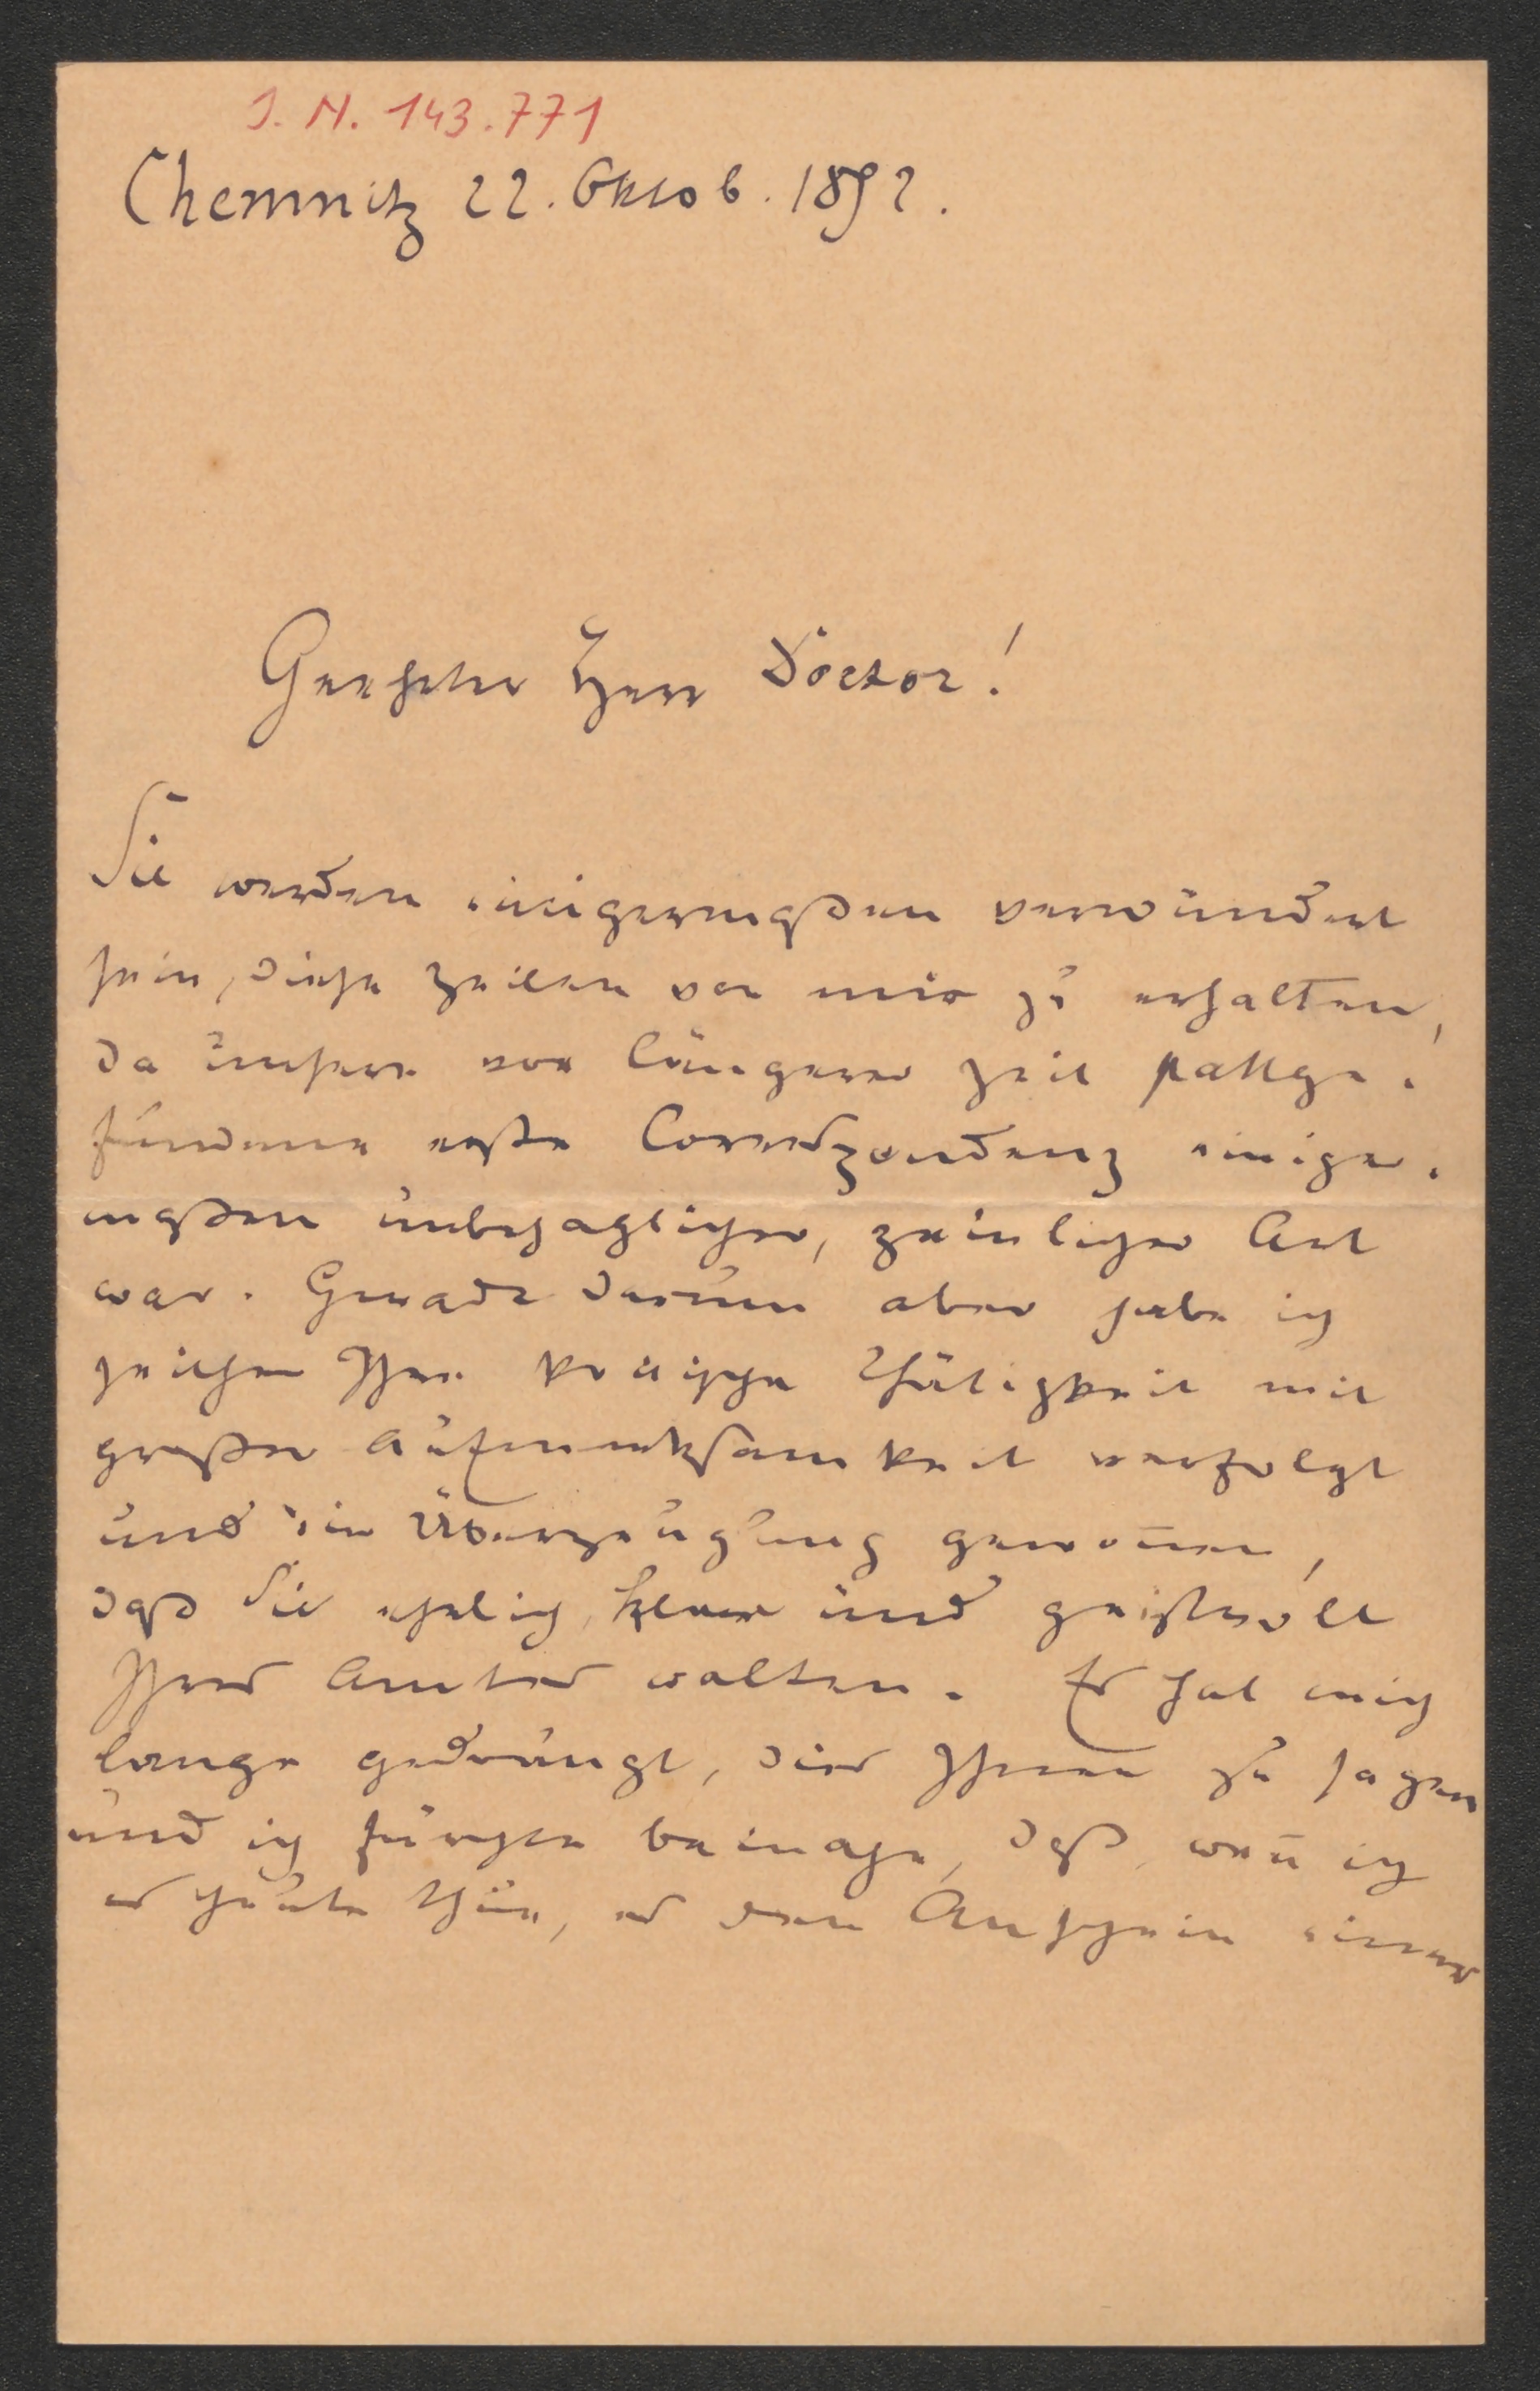 J. N. 143.771
Chemnitz 22. Oktob. 1892.
Geehrter Herr Doctor!
Sie werden einigermaßen verwundert
sein, diese Zeilen von mir zu erhalten,
da unsere vor längerer Zeit stattge-
fundene erste Correspondenz einiger-
maßen unbehaglicher, peinlicher Art
war. Gerade darum aber habe ich
seither Ihre kritische Thätigkeit mit
großer Aufmerksamkeit verfolgt
und die Überzeugung gewonnen,
daß Sie ehrlich, klar und geistvoll
Ihres Amtes walten. Es hat mich
lange gedrängt, dies Ihnen zu sagen
und ich fürchte beinahe, daß, wenn ich
es heute thue, es den Anschein einer